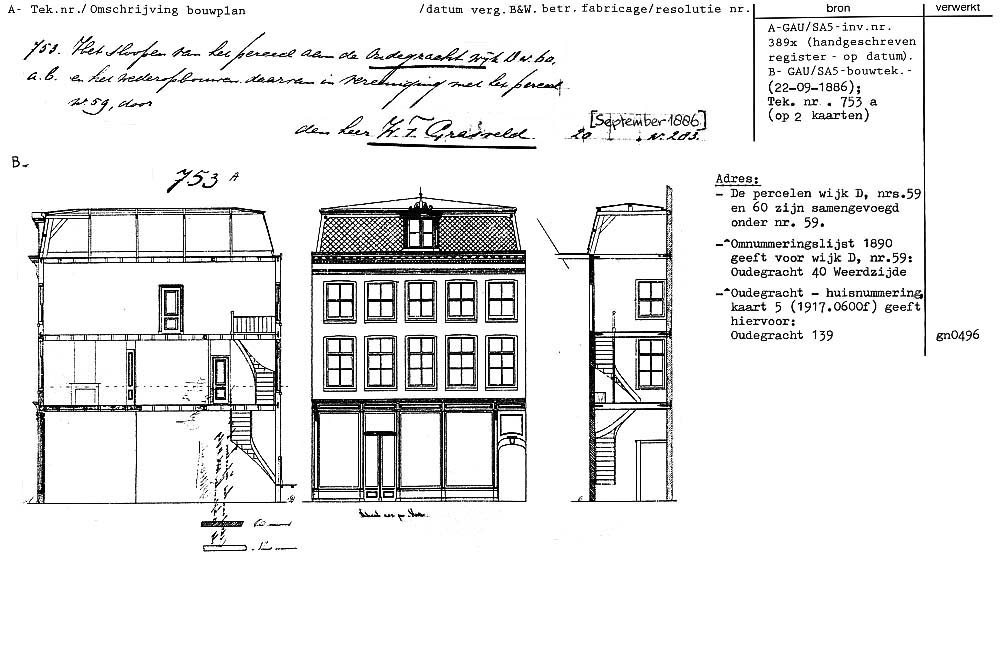 A- Tek.nr./Omschrijving bouwplan /datum verg.B&W. betr.fabricage/resolutie nr.
bron
verwerkt
753. Het sloopen van het perceel aan de Oudegracht wijk D no. 60,
a.b. en het wederopbouwen daarvan in vereeniging met het perceel
no. 59, door
den heer W. F. Grasveld.
[September 1886]
20 No. 203.
A-GAU/SA5-inv.nr.
389x (handgeschreven
register - op datum).
B- GAU/SA5-bouwtek.-
(22-09-1886);
Tek. nr . 753 a
(op 2 kaarten)
B-
753 A
Adres:
- De percelen wijk D, nrs.59
en 60 zijn samengevoegd
onder nr. 59.
-^Omnummeringslijst 1890
geeft voor wijk D, nr.59:
Oudegracht 40 Weerdzijde
-^Oudegracht - huisnummering,
kaart 5 (1917.0600f) geeft
hiervoor:
Oudegracht 139
gn0496